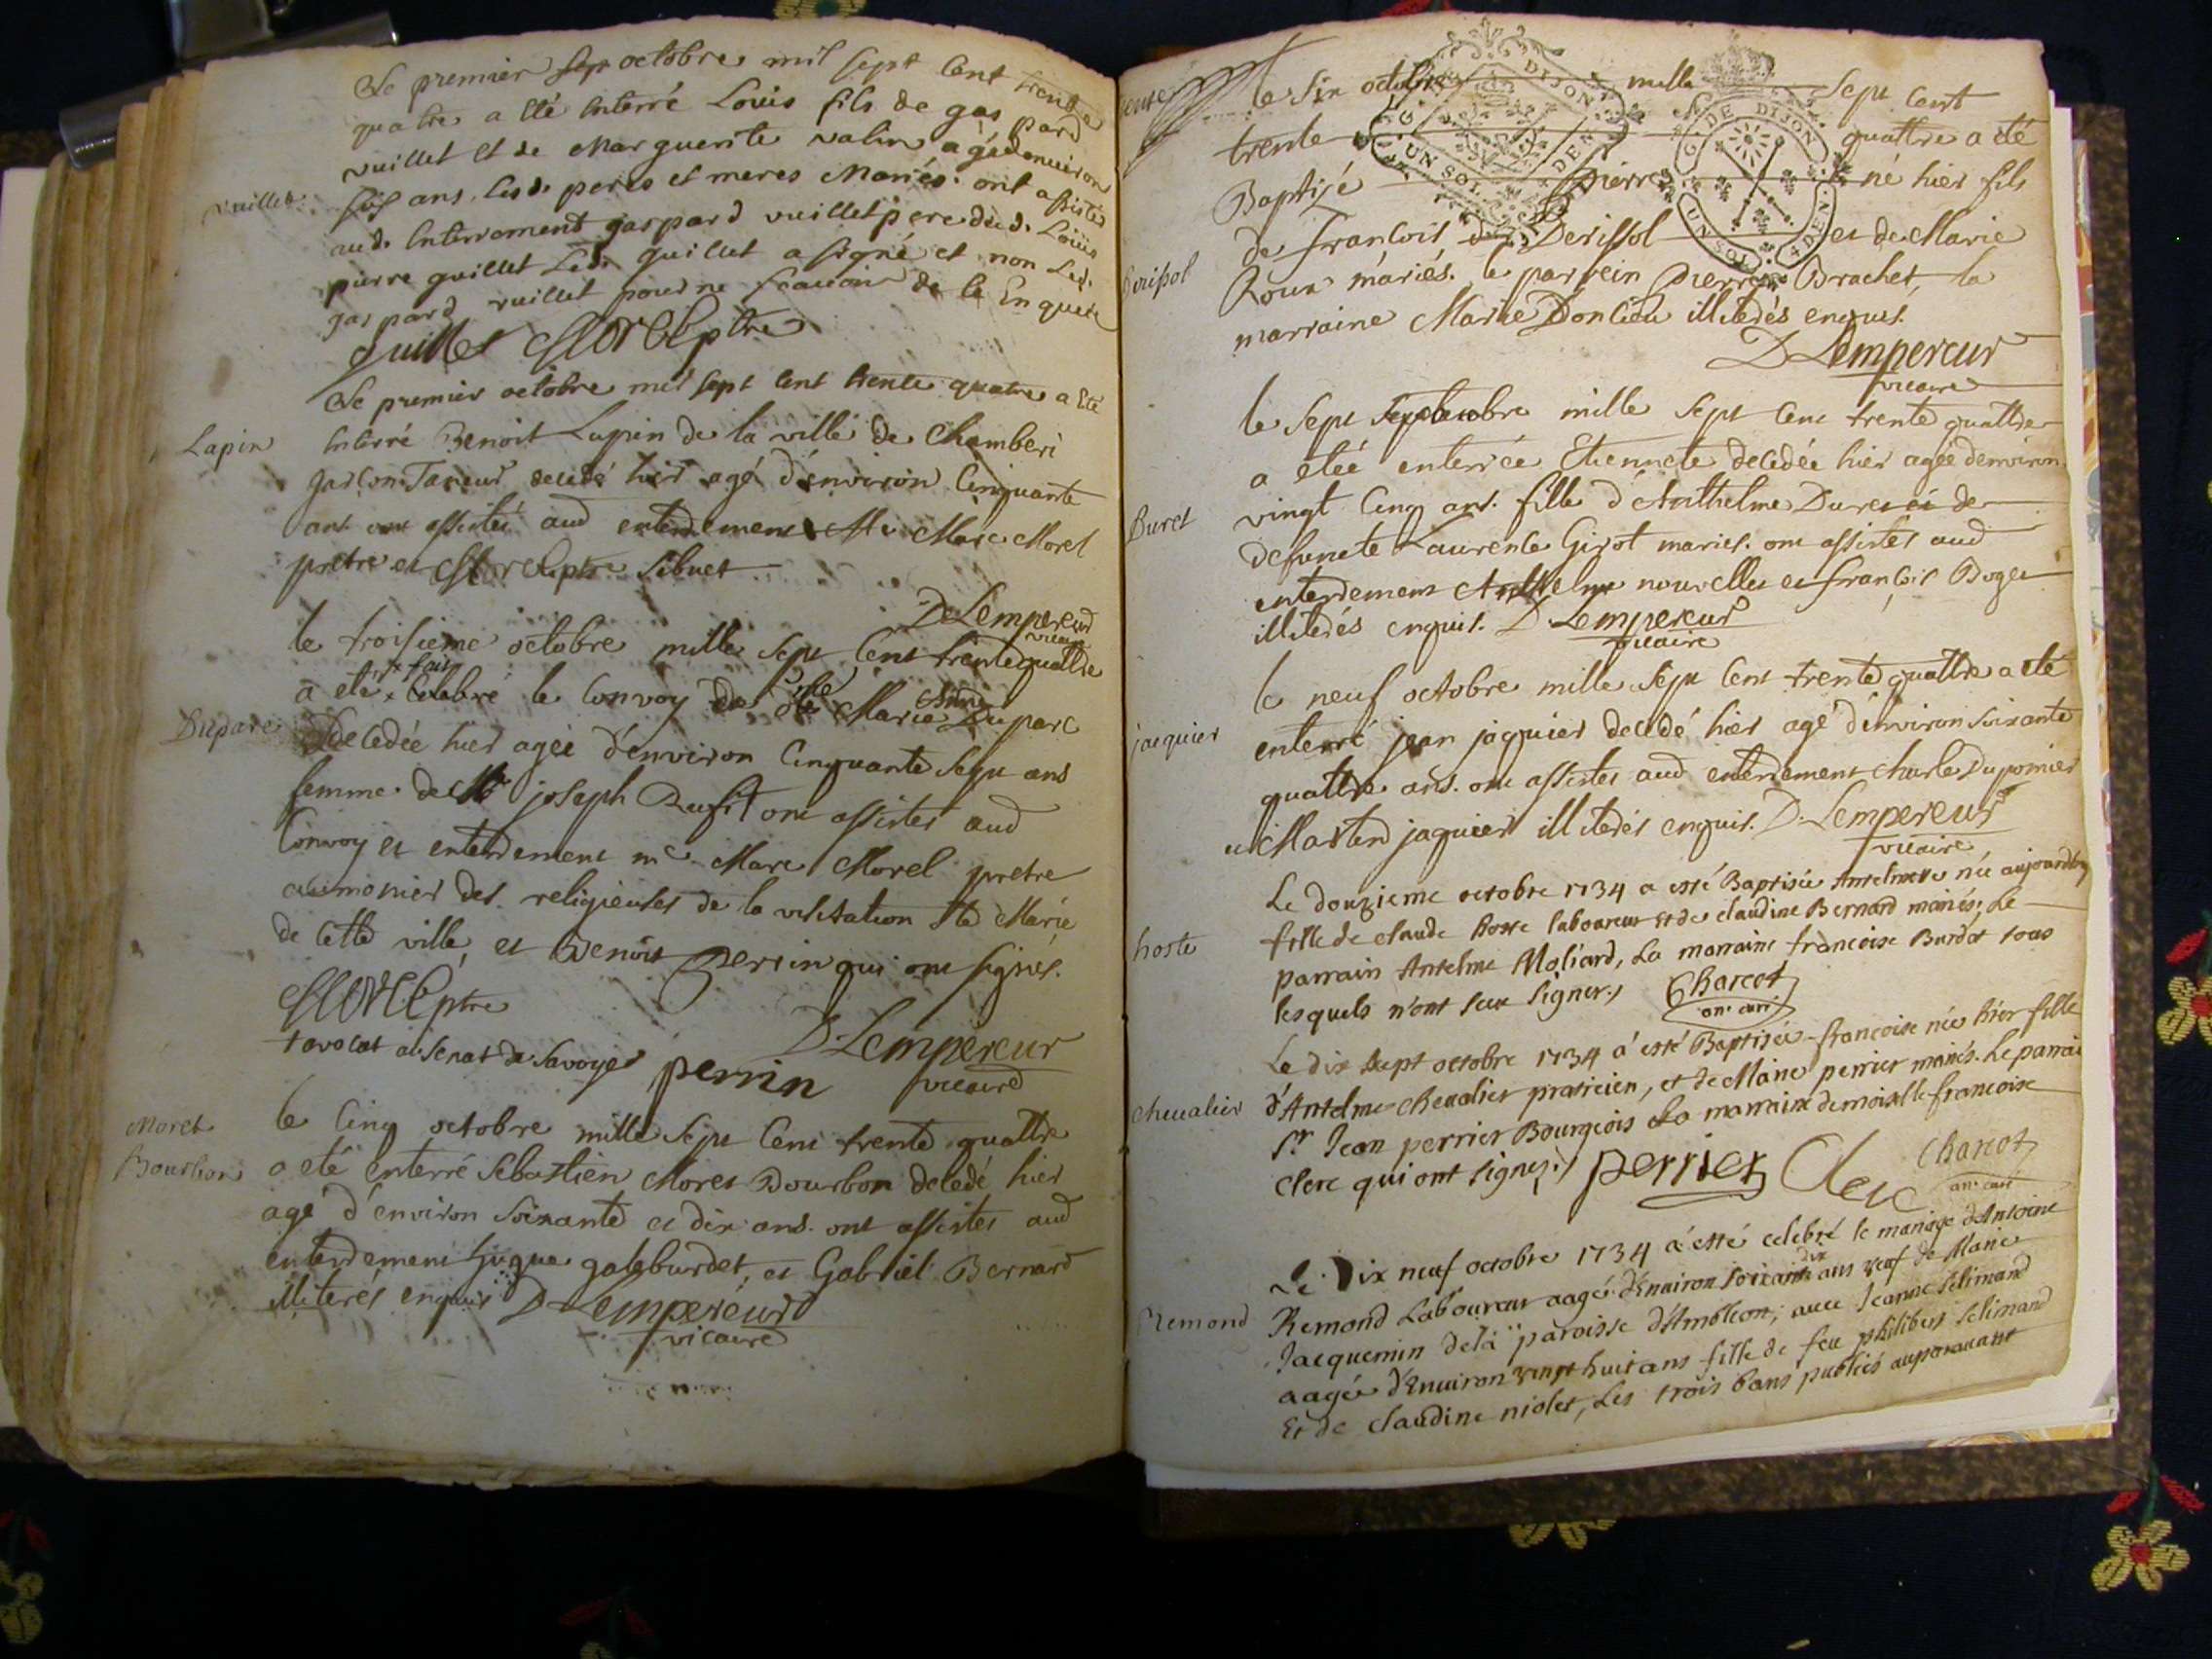 Le premier octobre mil sept cent trente
quatre a été Interré Louis fils de gas pard
vuillet et de Marguerite valin agé denuiron
six ans, lesd. peres et meres Mariés. ont assistés
Vuillet
aud. Interrement gaspard vuillet pere dud. Louis
pierre guillet Led. guillet a signé et non Led.
gas pard vuillet pour ne scauoir de le Enquis
guillet Morel ptre
Le premier octobre mil sept cent trente quatre a Eté
Lapin
Interré Benoit Lapin de la ville de Chamberi
garcon Taneur decedé hier agé d'environ Cinquante
ans ont assistés aud enterrement Mr Marc Morel
pretre et Morel ptre Sibuet
D Lempereur
vicaire
le troisieme octobre mille sept cent trente quattre
a eté x fait Celebré le Convoy de Marie Anne Duparc
Duparc
Decedée hier agée d'environ Cinquante sept ans
femme de Mr joseph Rufit ont assistés aud
Convoy et enterrement me Marc Morel pretre
aumonier des religieuses de la visitation Ste Marie
de cette ville, et Benoit Perrin qui ont signés.
Morel ptre
D Lempereur
vicaire
+ avocat au Senat de Savoye perrin
Moret
Bourbon
le Cinq octobre mille sept Cent trente quattre
a eté enterré Sebastien Moret Bourbon decedé hier
agé d'environ soixante et dix ans. ont assistés aud
enterrement hugue galeburdet, et Gabriel Bernard
illiterés enquis D Lempereur
vicaire
le six octobre mille sept Cent
trente quattre a eté
Baptisé Pierre né hier fils
de francois Derissol et de Marie
Derissol
Roux mariés. le parrein Pierre Brachet, la
marraine Marie Donlieu illiterés enquis.
D Lempereur
vicaire
le sept septembre mille sept Cent trente quattre
a etée enterrée Etiennete decedée hier agée denviron
Buret
vingt Cinq ans. fille d'Anthelme Duret et de
defuncte Laurence Girot mariés. ont assistés aud
enterrement Anthelme nouvelle et françois Boget
illiterés enquis. D Lempereur
vicaire
le neuf octobre mille sept Cent trente quattre a eté
jacquier
enterré jean jaquier decedé hier agé d'environ soixante
quattre ans. ont assistés aud enterrement charle Dupomier
et Martin jaquier illiterés enquis. D. Lempereur
vicaire
Le douzieme octobre 1734 a esté Baptisée Antelmete née aujourdhuy
hoste
fille de claude hoste laboureur et de claudine Bernard mariés; Le
parrain Antelme Moliard, La marraine francoise Burdet tous
lesquels n'ont sceu signer. Charcot
Le dix sept octobre 1734 a esté Baptisée francoise née hier fille
chevalier
d'Antelme chevalier praticien, et de Marie perrier mariés. Le parrain
Sr Jean perrier Bourgeois La marraine demoiselle francoise
clerc qui ont signez. perrier Clerc Charcot
Le Dix neuf octobre 1734 a esté celebré le mariage d'Antoine
Remond
Remond Laboureur aagé d'Enuiron soixante dix ans veuf de Marie
Jacquemin de la paroisse d'Ambleon; avec Jeanne Selimand
aagée d'Enuiron vingt huit ans fille de feu philibert Selimand
Et de claudine niolet, Les trois bans publiés auparauant
G. DE DIJON
UN SOL 4 DEN
G. DE DIJON
UN SOL 4 DEN